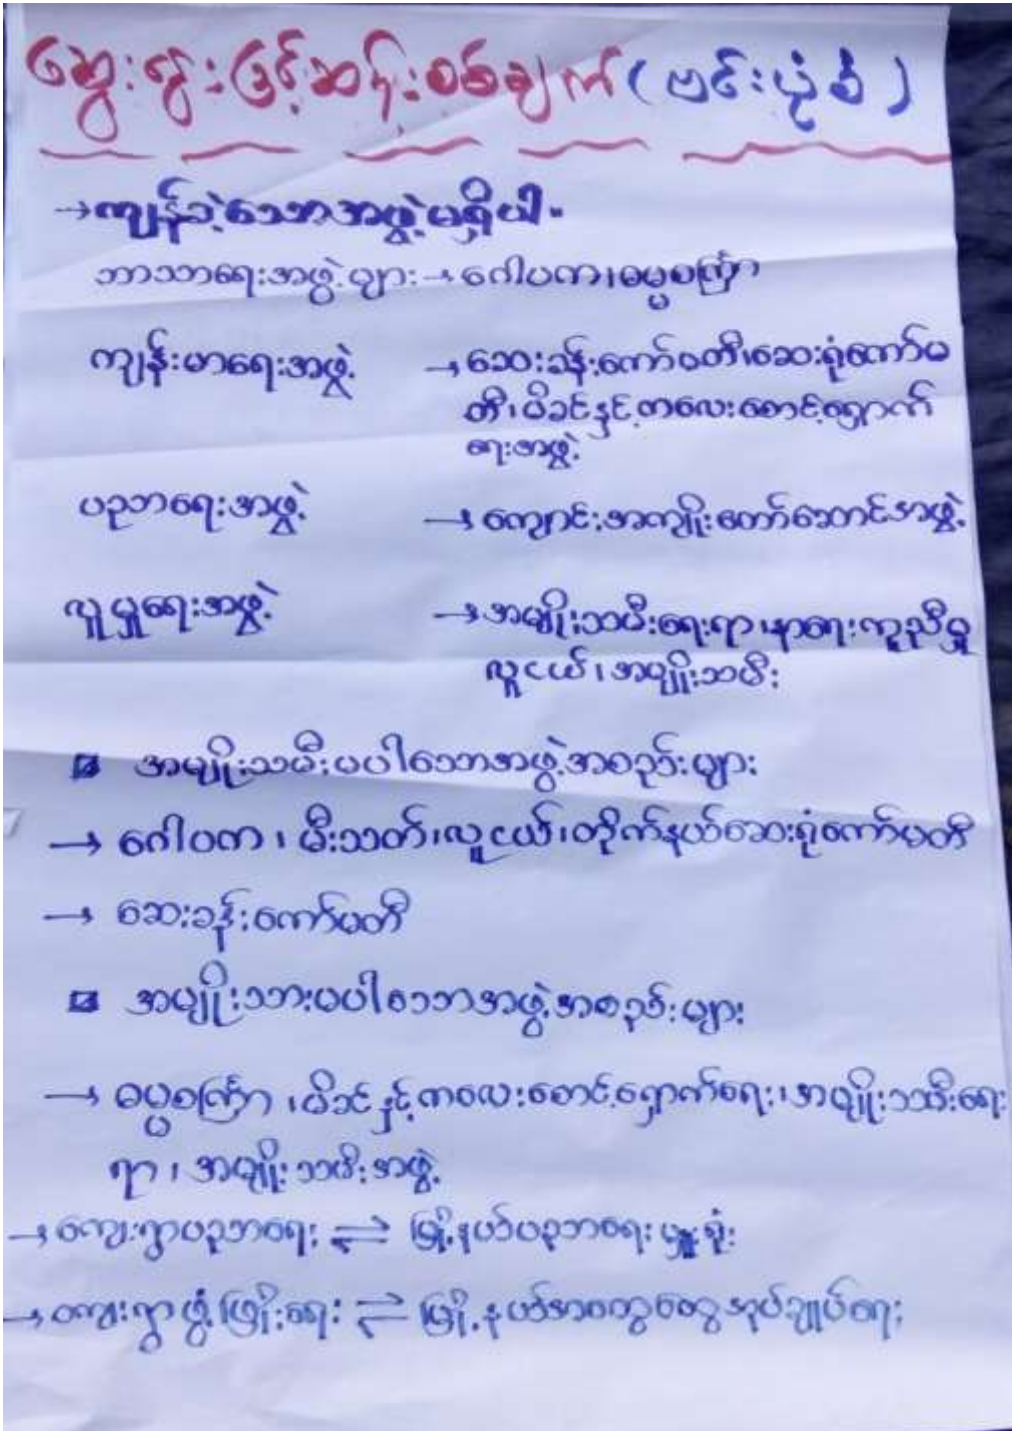 ဆွေးနွေးမြင့်ဆန်းစစ်ချက် (ဗင်းပုံစံ)
→ ကျန်ခဲ့သောအဖွဲ့မရှိပါ။
ဘာသာရေးအဖွဲ့များ → ဂေါပက၊ ဓမ္မစကြာ
ကျန်းမာရေးအဖွဲ့ → ဆေးခန်းကော်မတီ၊ ဆေးရုံကော်မ
တီ၊ မိခင်နှင့်ကလေးစောင့်ရှောက်
ရေးအဖွဲ့
ပညာရေးအဖွဲ့ → ကျောင်းအကျိုးတော်ဆောင်အဖွဲ့
လူမှုရေးအဖွဲ့ → အမျိုးသမီးရေးရာ၊ နာရေးကူညီမှု
လူငယ်၊ အမျိုးသမီး
အမျိုးသမီးမပါသောအဖွဲ့အစည်းများ
→ ဂေါပက၊ မီးသတ်၊ လူငယ်၊ တိုက်နယ်ဆေးရုံကော်မတီ
→ ဆေးခန်းကော်မတီ
အမျိုးသားမပါသောအဖွဲ့အစည်းများ
→ ဓမ္မစကြာ၊ မိခင်နှင့်ကလေးစောင့်ရှောက်ရေး၊ အမျိုးသမီးရေး
ရာ၊ အမျိုးသမီးအဖွဲ့
→ ကျေးရွာပညာရေး ⇌ မြို့နယ်ပညာရေးမှူးရုံး
→ ကျေးရွာဖွံ့ဖြိုးရေး ⇌ မြို့နယ်အထွေထွေအုပ်ချုပ်ရေး